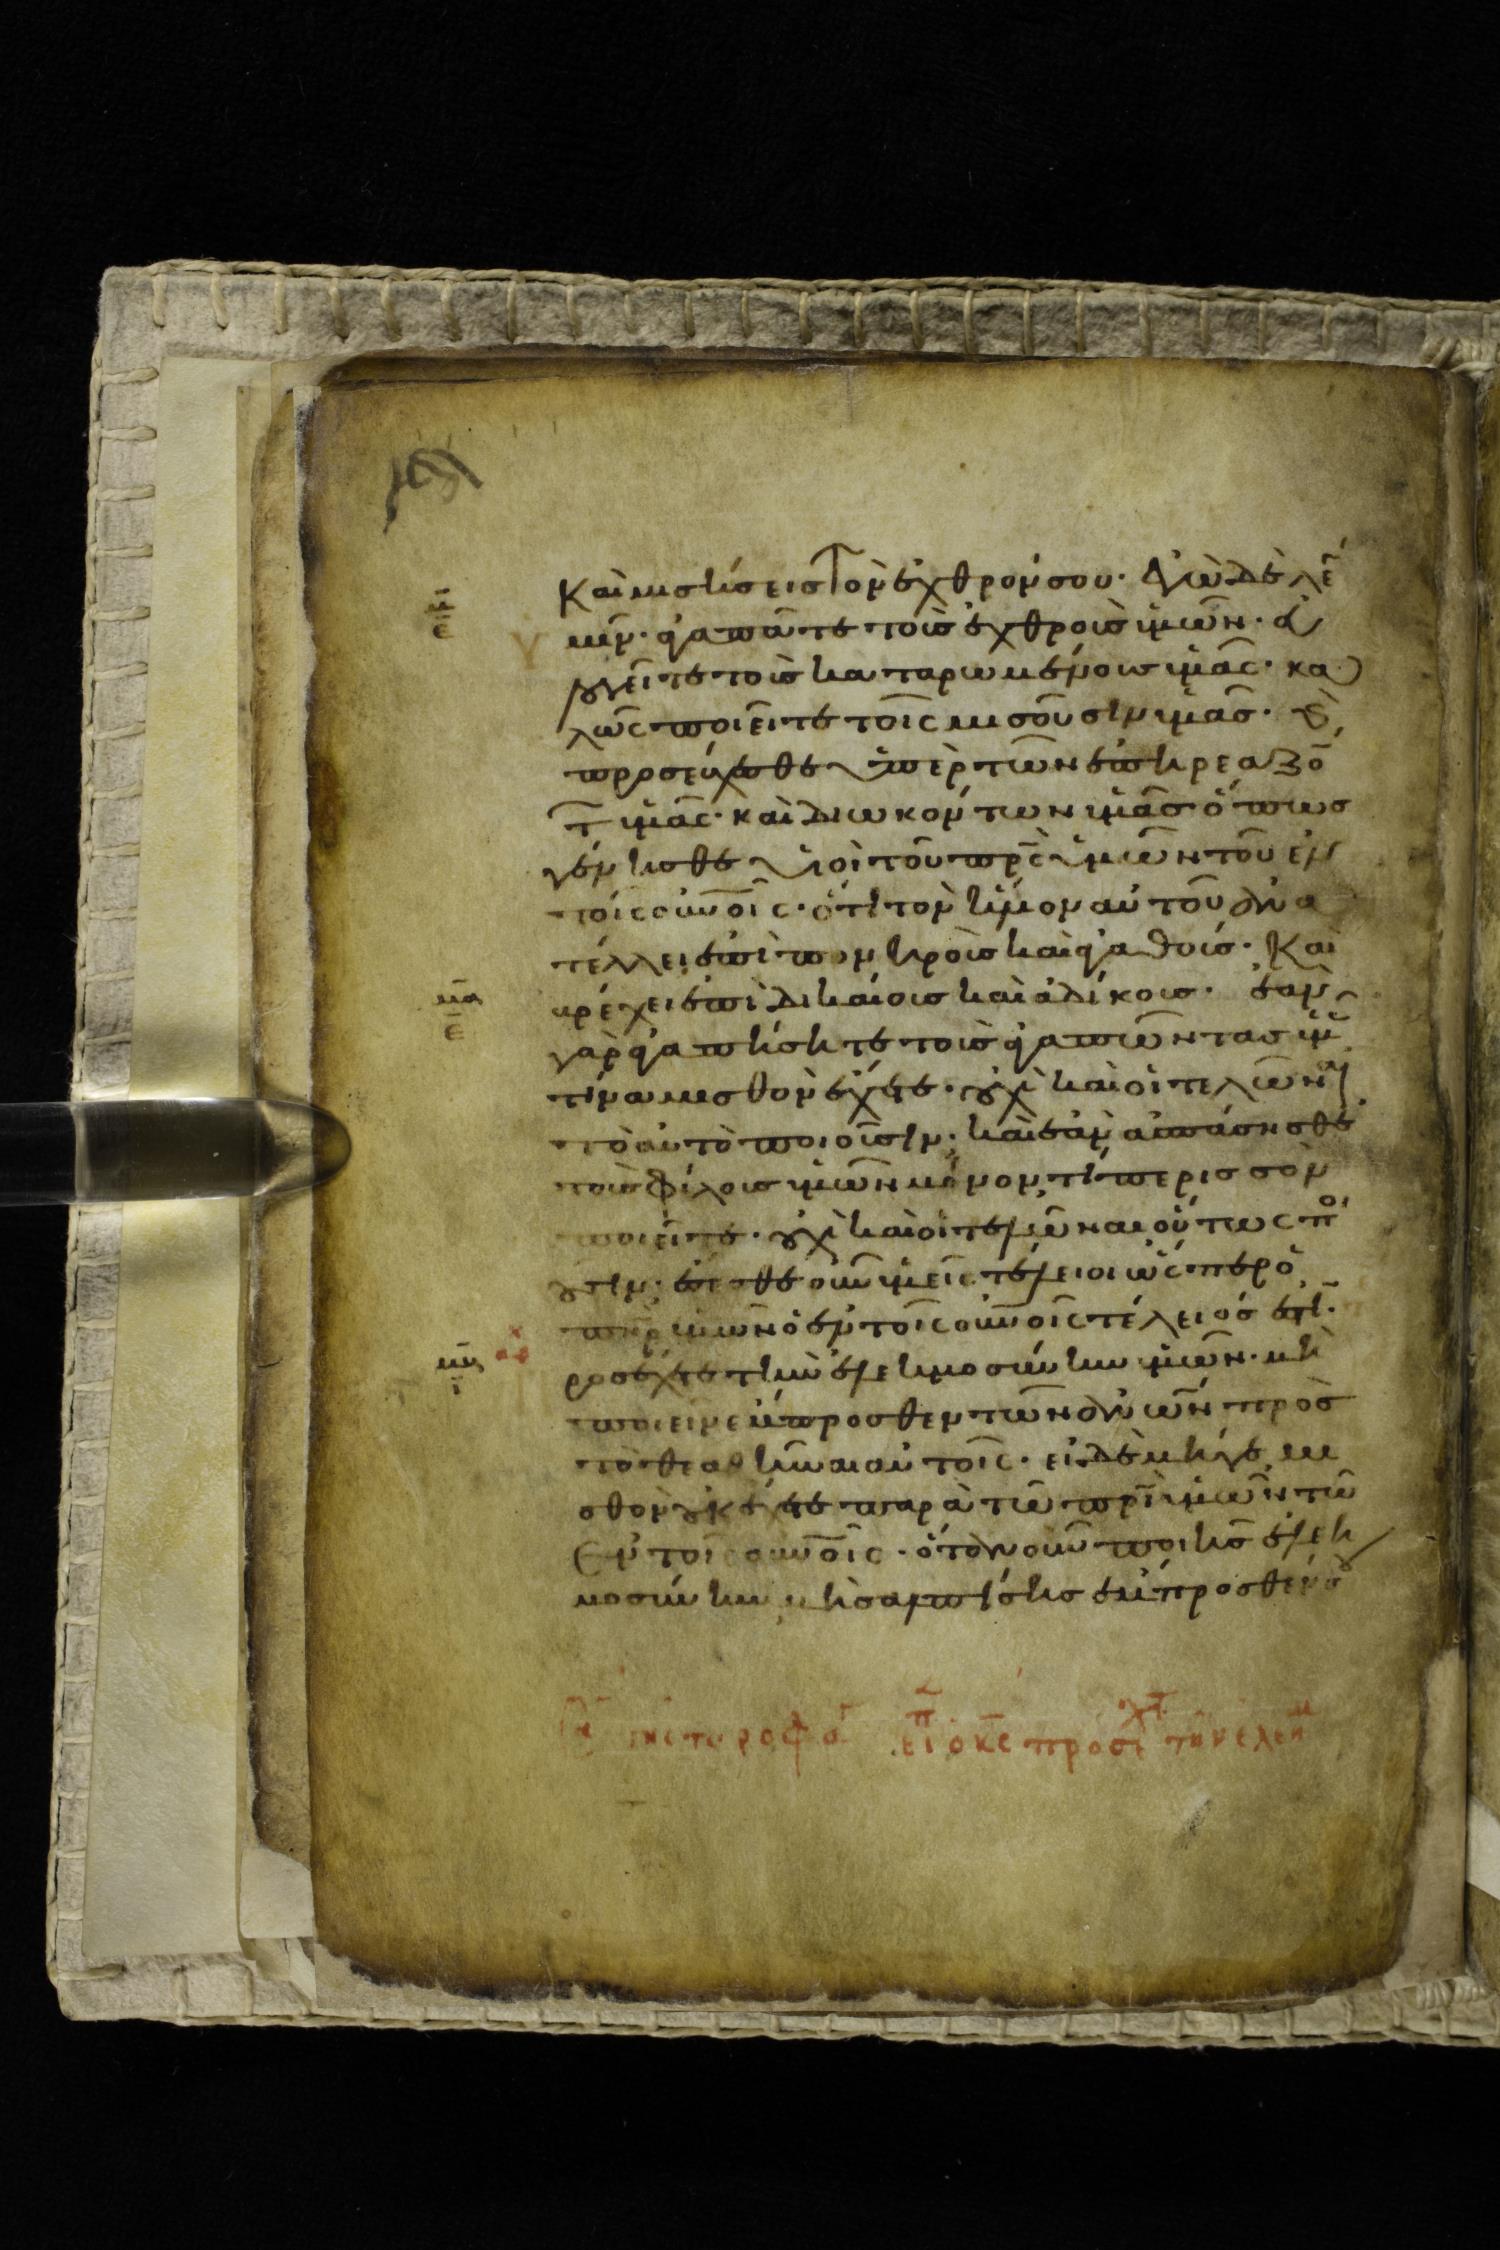 Καὶ μισήσεις τὸν ἐχθρόν σου· ἐγὼ δὲ λέ
μῖν· ἀγαπᾶτε τοὺς ἐχθροὺς ὑμῶν· εὐ
λογεῖτε τοὺς καταρωμένους ὑμᾶς· κα
λῶς ποιεῖτε τοῖς μισοῦσιν ὑμᾶς· καὶ
προσεύχεσθε ὑπὲρ τῶν ἐπηρεαζόν
των ὑμᾶς· καὶ διωκόντων ὑμᾶς ὅπως
γένησθε υἱοὶ τοῦ πρ̅ς ὑμῶν τοῦ ἐν
τοῖς οὐν̅οῖς· ὅτι τὸν ἥλιον αὐτοῦ ἀνα
τέλλει ἐπὶ πονηροὺς καὶ ἀγαθούς· Καὶ
βρέχει ἐπὶ δικαίους καὶ ἀδίκους· ἐὰν
γὰρ ἀγαπήσητε τοὺς ἀγαπῶντας ὑμᾶς
τίνα μισθὸν ἔχετε· οὐχὶ καὶ οἱ τελῶναι
τὸ αὐτὸ ποιοῦσιν; καὶ ἐὰν ἀσπάσησθε
τοὺς φίλους ὑμῶν μόνον, τί περισσὸν
ποιεῖτε· οὐχὶ καὶ οἱ τελῶναι οὕτως ποι
οῦσιν; ἔσεσθε οὖν ὑμεῖς τέλειοι ὥσπερ ὁ
πη̅ρ ὑμῶν ὁ ἐν τοῖς οὐν̅οῖς τέλειός ἐστι·
ροσέχετε τὴν ἐλεημοσύνην ὑμῶν· μὴ
ποιεῖν ἔμπροσθεν τῶν ἀν̅ων πρὸς
τὸ θεαθῆναι αὐτοῖς· εἰ δὲ μήγε, μι
σθὸν οὐκ ἔχετε παρὰ τῶ πρ̅ι ὑμῶν τῶ
ἐν τοῖς οὐν̅οῖς· ὅταν οὖν ποιῆς ἐλεη
μοσύνην μὴ σαλπίσης ἔμπροσθέν σου
τῆς τυροφά εἶ ὁ κς̅ προσέχετε τὴν ἐλεημ